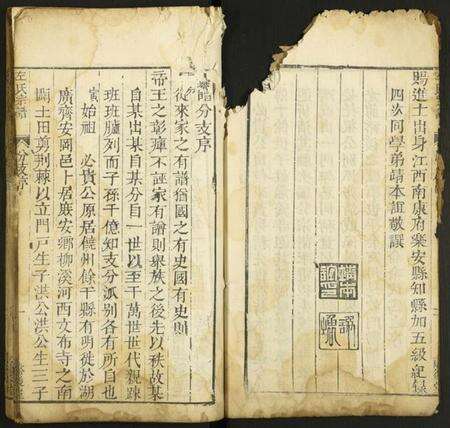 賜進士出身江西南康府樂安縣知縣加五級紀錄
四次同學弟靖本誼敬譔
譜分支序
從來家之有譜猶國之有史國有史則
帝王之彰癉不誣家有譜則舉族之後先以秩故某
自某出某自某分自一世以至千萬世世代親踈
班班臚列而子孫千億知支分派別各有所自也
始祖 必貴公原居饒州餘干縣有明徙於湖
廣齊安岡邑卜居處安鄉柳溪河西文布寺之南
闢土田剪荆棘以立門戸生子洪公洪公生三子
左氏宗譜 分支序